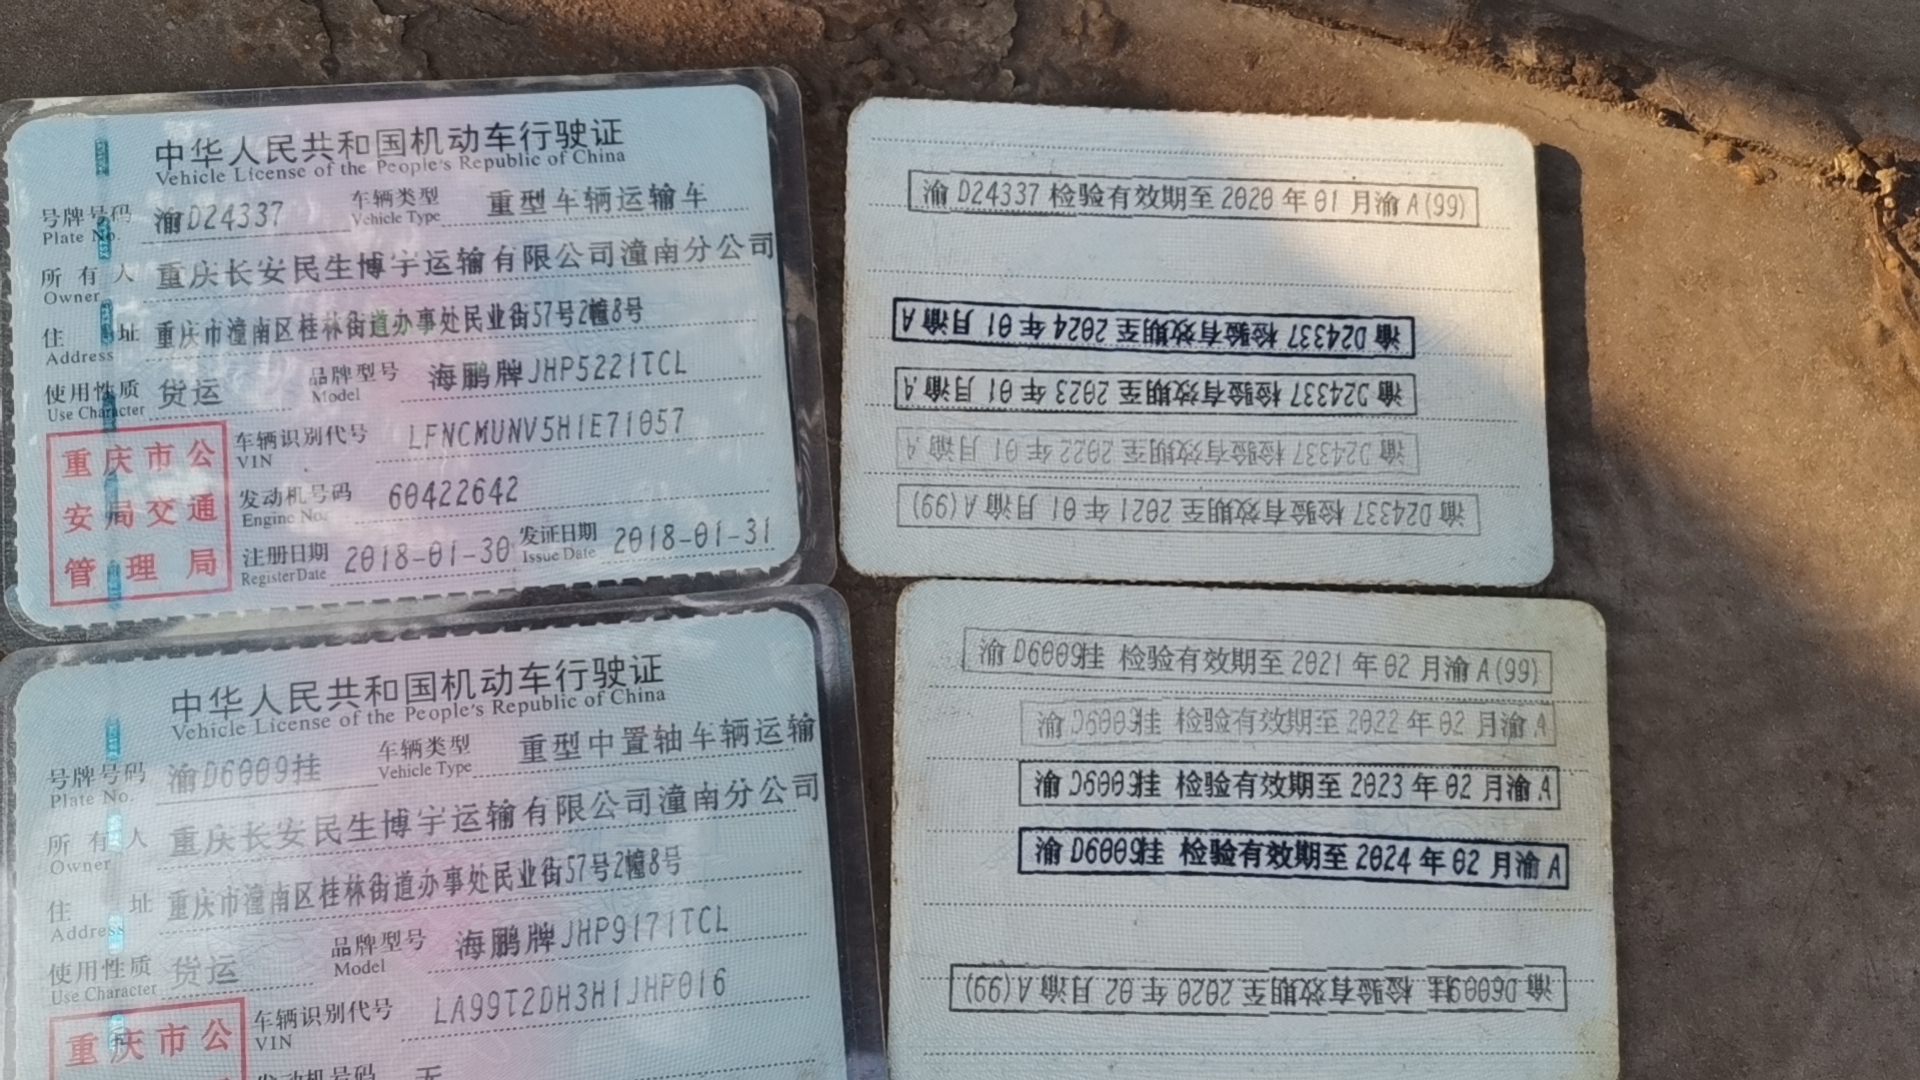 中华人民共和国机动车行驶证
Vehicle License of the People's Republic of China
号牌号码 渝D24337 车辆类型 重型车辆运输车
Plate No. Vehicle Type
所有人 重庆长安民生博宇运输有限公司潼南分公司
Owner
住址 重庆市潼南区桂林街道办事处民业街57号2幢8号
Address
使用性质 货运 品牌型号 海鹏牌JHP5221TCL
Use Character Model
车辆识别代号 LFNCMUNV5H1E71057
VIN
发动机号码 60422642
Engine No.
注册日期 2018-01-30 发证日期 2018-01-31
Register Date Issue Date
重庆市公
安局交通
管理局
渝D24337 检验有效期至2020年01月渝A(99)
渝D24337 检验有效期至2024年01月渝A
渝D24337 检验有效期至2023年01月渝A
渝D24337 检验有效期至2022年01月渝A
渝D24337 检验有效期至2021年01月渝A(99)
中华人民共和国机动车行驶证
Vehicle License of the People's Republic of China
号牌号码 渝D6009挂 车辆类型 重型中置轴车辆运输
Plate No. Vehicle Type
所有人 重庆长安民生博宇运输有限公司潼南分公司
Owner
住址 重庆市潼南区桂林街道办事处民业街57号2幢8号
Address
品牌型号 海鹏牌JHP9171TCL
Model
使用性质 货运
Use Character
车辆识别代号 LA99T2DH3H1JHP016
VIN
重庆市公
发动机号码 无
渝D6009挂 检验有效期至2021年02月渝A(99)
渝D6009挂 检验有效期至2022年02月渝A
渝D6009挂 检验有效期至2023年02月渝A
渝D6009挂 检验有效期至2024年02月渝A
渝D6009挂 检验有效期至2020年02月渝A(99)